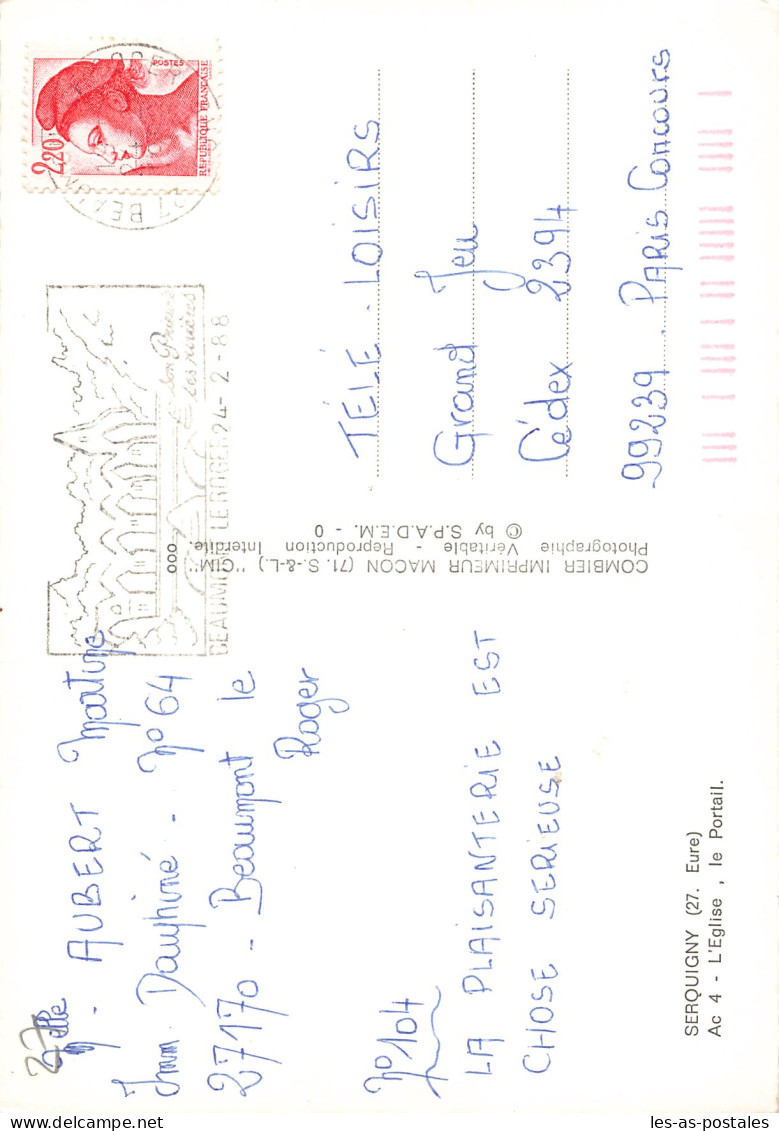 Melle. AUBERT Martine
Imm. Dauphiné - N° 64
27170 - Beaumont le
Roger
N° 104
LA PLAISANTERIE EST
CHOSE SERIEUSE
27
SERQUIGNY (27. Eure)
Ac 4 - L'Eglise, le Portail.
COMBIER IMPRIMEUR MACON (71. S.-&-L.) "CIM"
Photographie Véritable - Reproduction Interdite.
© by S.P.A.D.E.M. - 0
TÉLÉ. LOISIRS
Grand Jeu
Cédex 2394
99239. PARIS Concours
2,20
POSTES
REPUBLIQUE FRANÇAISE
27 BEAUMONT
son Prieuré
ses rivières
BEAUMONT LE ROGER 24-2-88
000
les-as-postales